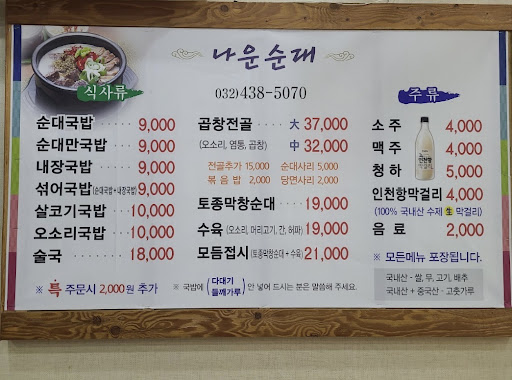 나운순대
032)438-5070
식사류
순대국밥 ····· 9,000
순대만국밥 ··· 9,000
내장국밥 ····· 9,000
섞어국밥(순대국밥+내장국밥) 9,000
살코기국밥 ·· 10,000
오소리국밥 ·· 10,000
술국 ······· 18,000
※ 특 주문시 2,000원 추가
곱창전골 ··· 大 37,000
(오소리, 염통, 곱창) 中 32,000
전골추가 15,000 순대사리 5,000
볶음밥 2,000 당면사리 2,000
토종막창순대 ··· 19,000
수육 (오소리, 머리고기, 간, 허파) 19,000
모듬접시 (토종막창순대 + 수육) 21,000
※ 국밥에 ( 다대기 들깨가루 ) 안 넣어 드시는 분은 말씀해 주세요.
주류
소주 4,000
맥주 4,000
청하 5,000
인천항막걸리 4,000
(100% 국내산 수제 生 막걸리)
음료 2,000
※ 모든메뉴 포장됩니다.
국내산 - 쌀, 무, 고기, 배추
국내산 + 중국산 - 고춧가루